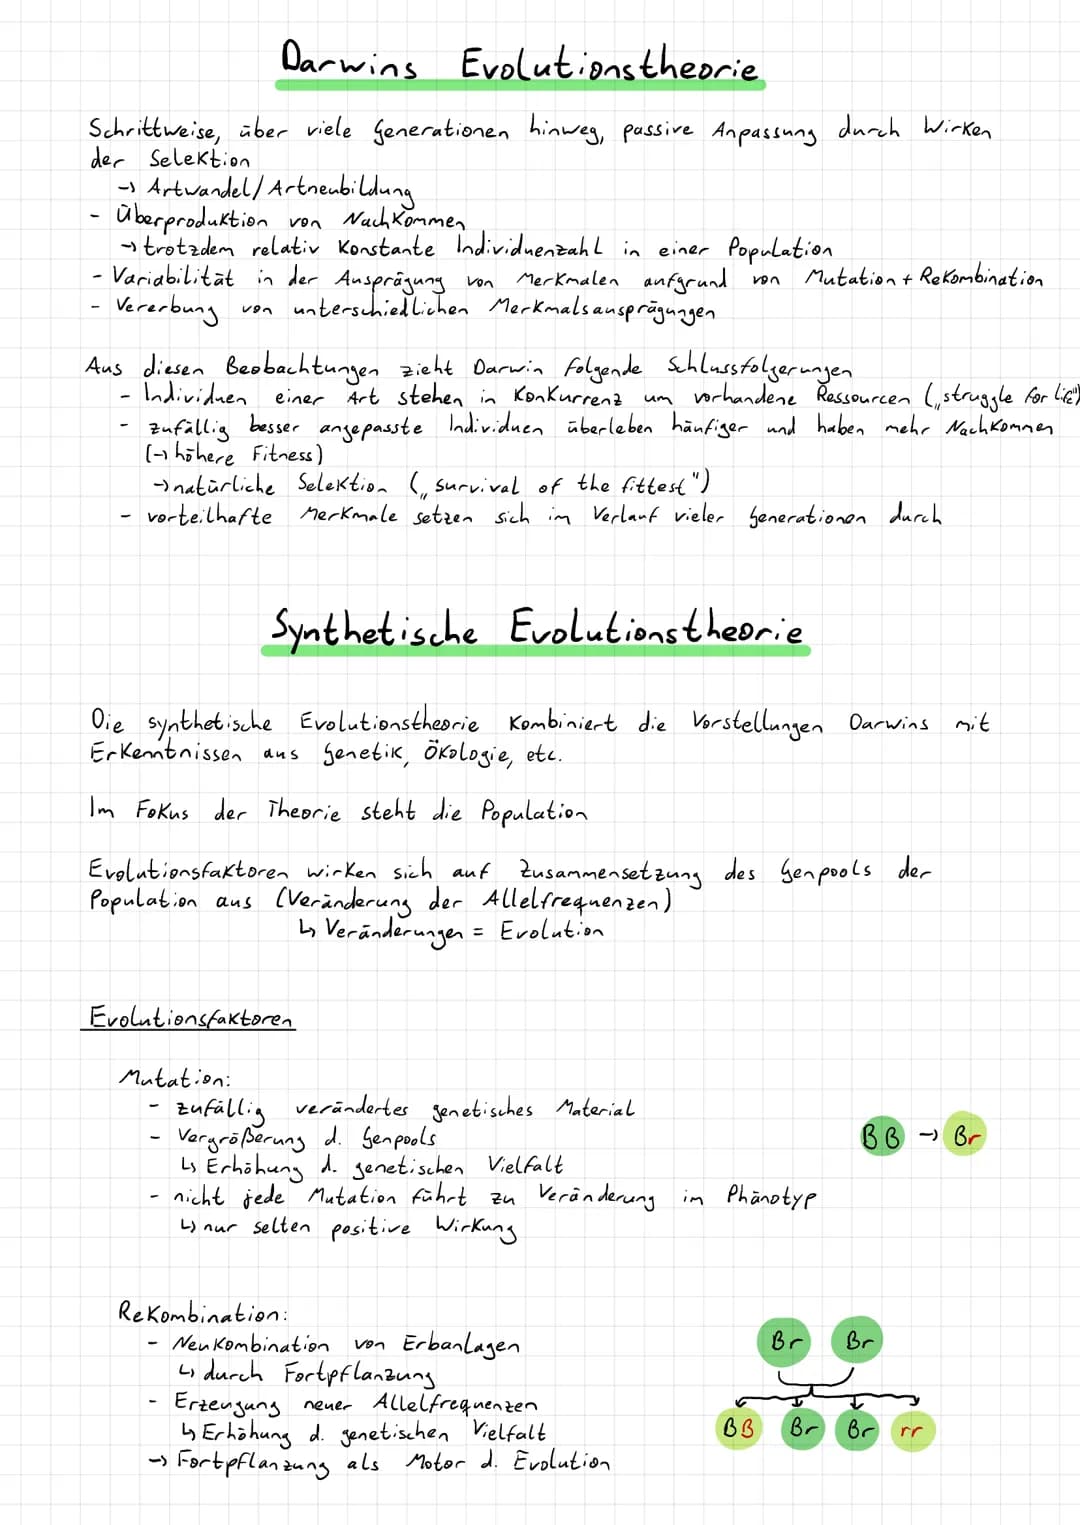 Darwins Evolutionstheorie
Schrittweise, über viele Generationen hinweg, passive Anpassung durch Wirken
der Selektion
→ Artwandel/Artneubildung
- Überproduktion von Nachkommen
→ trotzdem relativ konstante Individuenzahl in einer Population
- Variabilität in der Ausprägung von Merkmalen aufgrund von Mutation + Rekombination
- Vererbung von unterschiedlichen Merkmalsausprägungen
Aus diesen Beobachtungen zieht Darwin folgende Schlussfolgerungen
- Individuen einer Art stehen in Konkurrenz um vorhandene Ressourcen („struggle for life")
- zufällig besser angepasste Individuen überleben häufiger und haben mehr Nachkommen
(→ höhere Fitness)
→ natürliche Selektion („survival of the fittest")
- vorteilhafte Merkmale setzen sich im Verlauf vieler Generationen durch
Synthetische Evolutionstheorie
Die synthetische Evolutionstheorie kombiniert die Vorstellungen Darwins mit
Erkenntnissen aus Genetik, Ökologie, etc.
Im Fokus der Theorie steht die Population
Evolutionsfaktoren wirken sich auf Zusammensetzung des Genpools der
Population aus (Veränderung der Allelfrequenzen)
↳ Veränderungen = Evolution
Evolutionsfaktoren
Mutation:
- zufällig verändertes genetisches Material
- Vergrößerung d. Genpools
↳ Erhöhung d. genetischen Vielfalt
- nicht jede Mutation führt zu Veränderung im Phänotyp
↳ nur selten positive Wirkung
BB → Br
Rekombination:
- Neukombination von Erbanlagen
↳ durch Fortpflanzung
- Erzeugung neuer Allelfrequenzen
↳ Erhöhung d. genetischen Vielfalt
→ Fortpflanzung als Motor d. Evolution
Br Br
BB Br Br rr